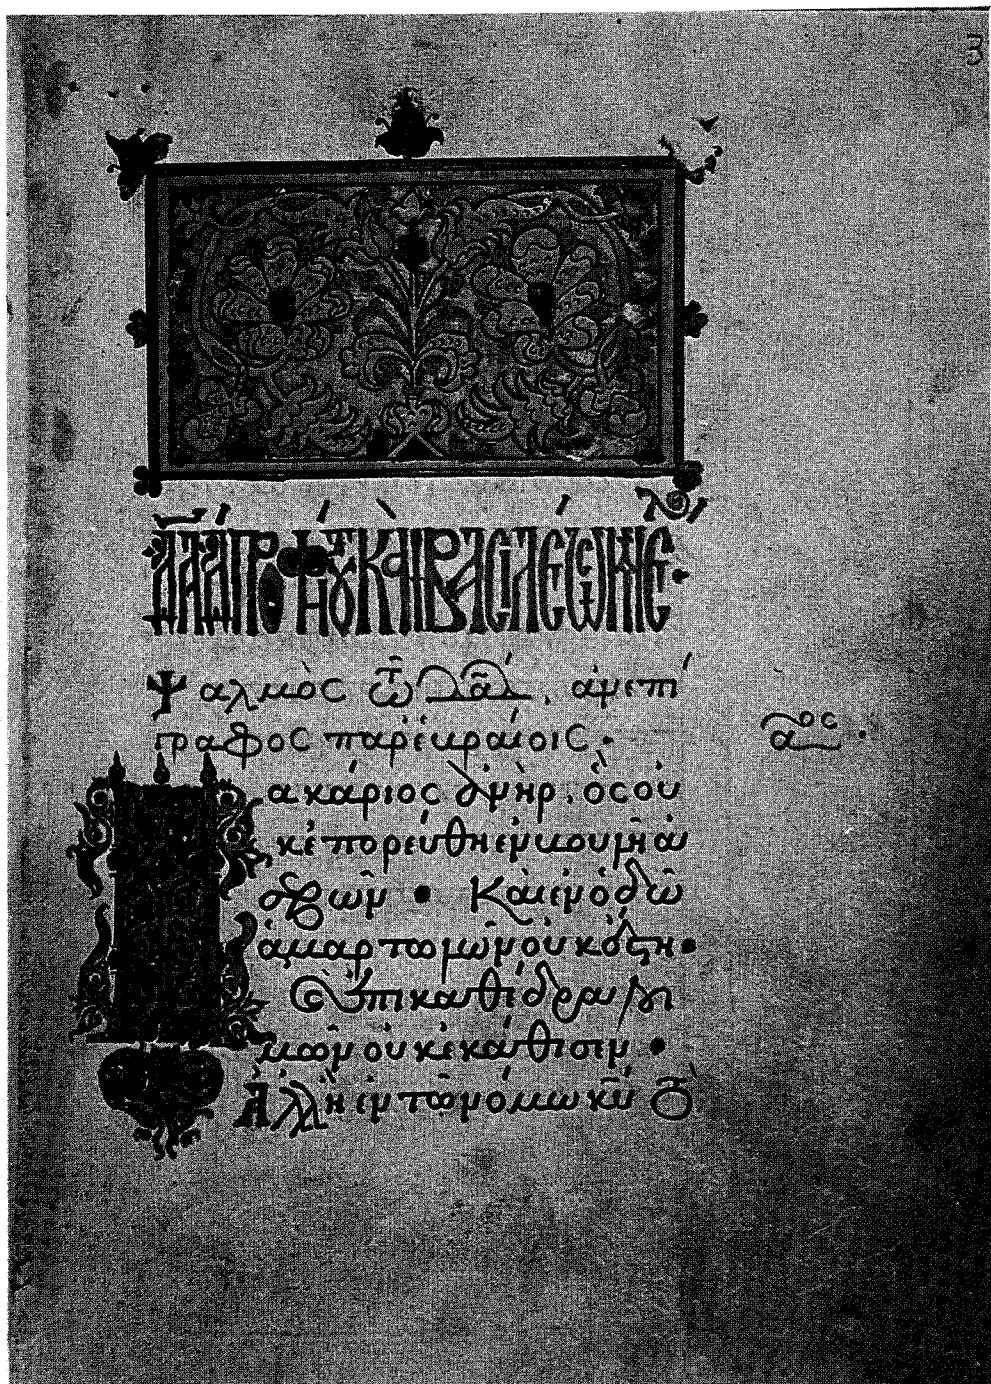 3
ΔΑΔ ΠΡΟΦΉΤΟΥ ΚΑῚ ΒΑΣΙΛΈΩΣ ΜΕΛ
Ψαλμὸς τῶ δᾶδ, ἀνεπί
γραφος παρ' ἑβραίοις·
αος·
ακάριος ἀνὴρ, ὃς οὐ
κ ἐπορεύθη ἐν βουλῇ ἀ
σεβῶν · Καὶ ἐν ὁδῶ
ἁμαρτωλῶν οὐκ ἔστη·
Καὶ ἐπὶ καθέδραν λοι
μῶν οὐκ ἐκάθισεν ·
Ἀλλ' ἢ ἐν τῶ νόμω κυ τὸ